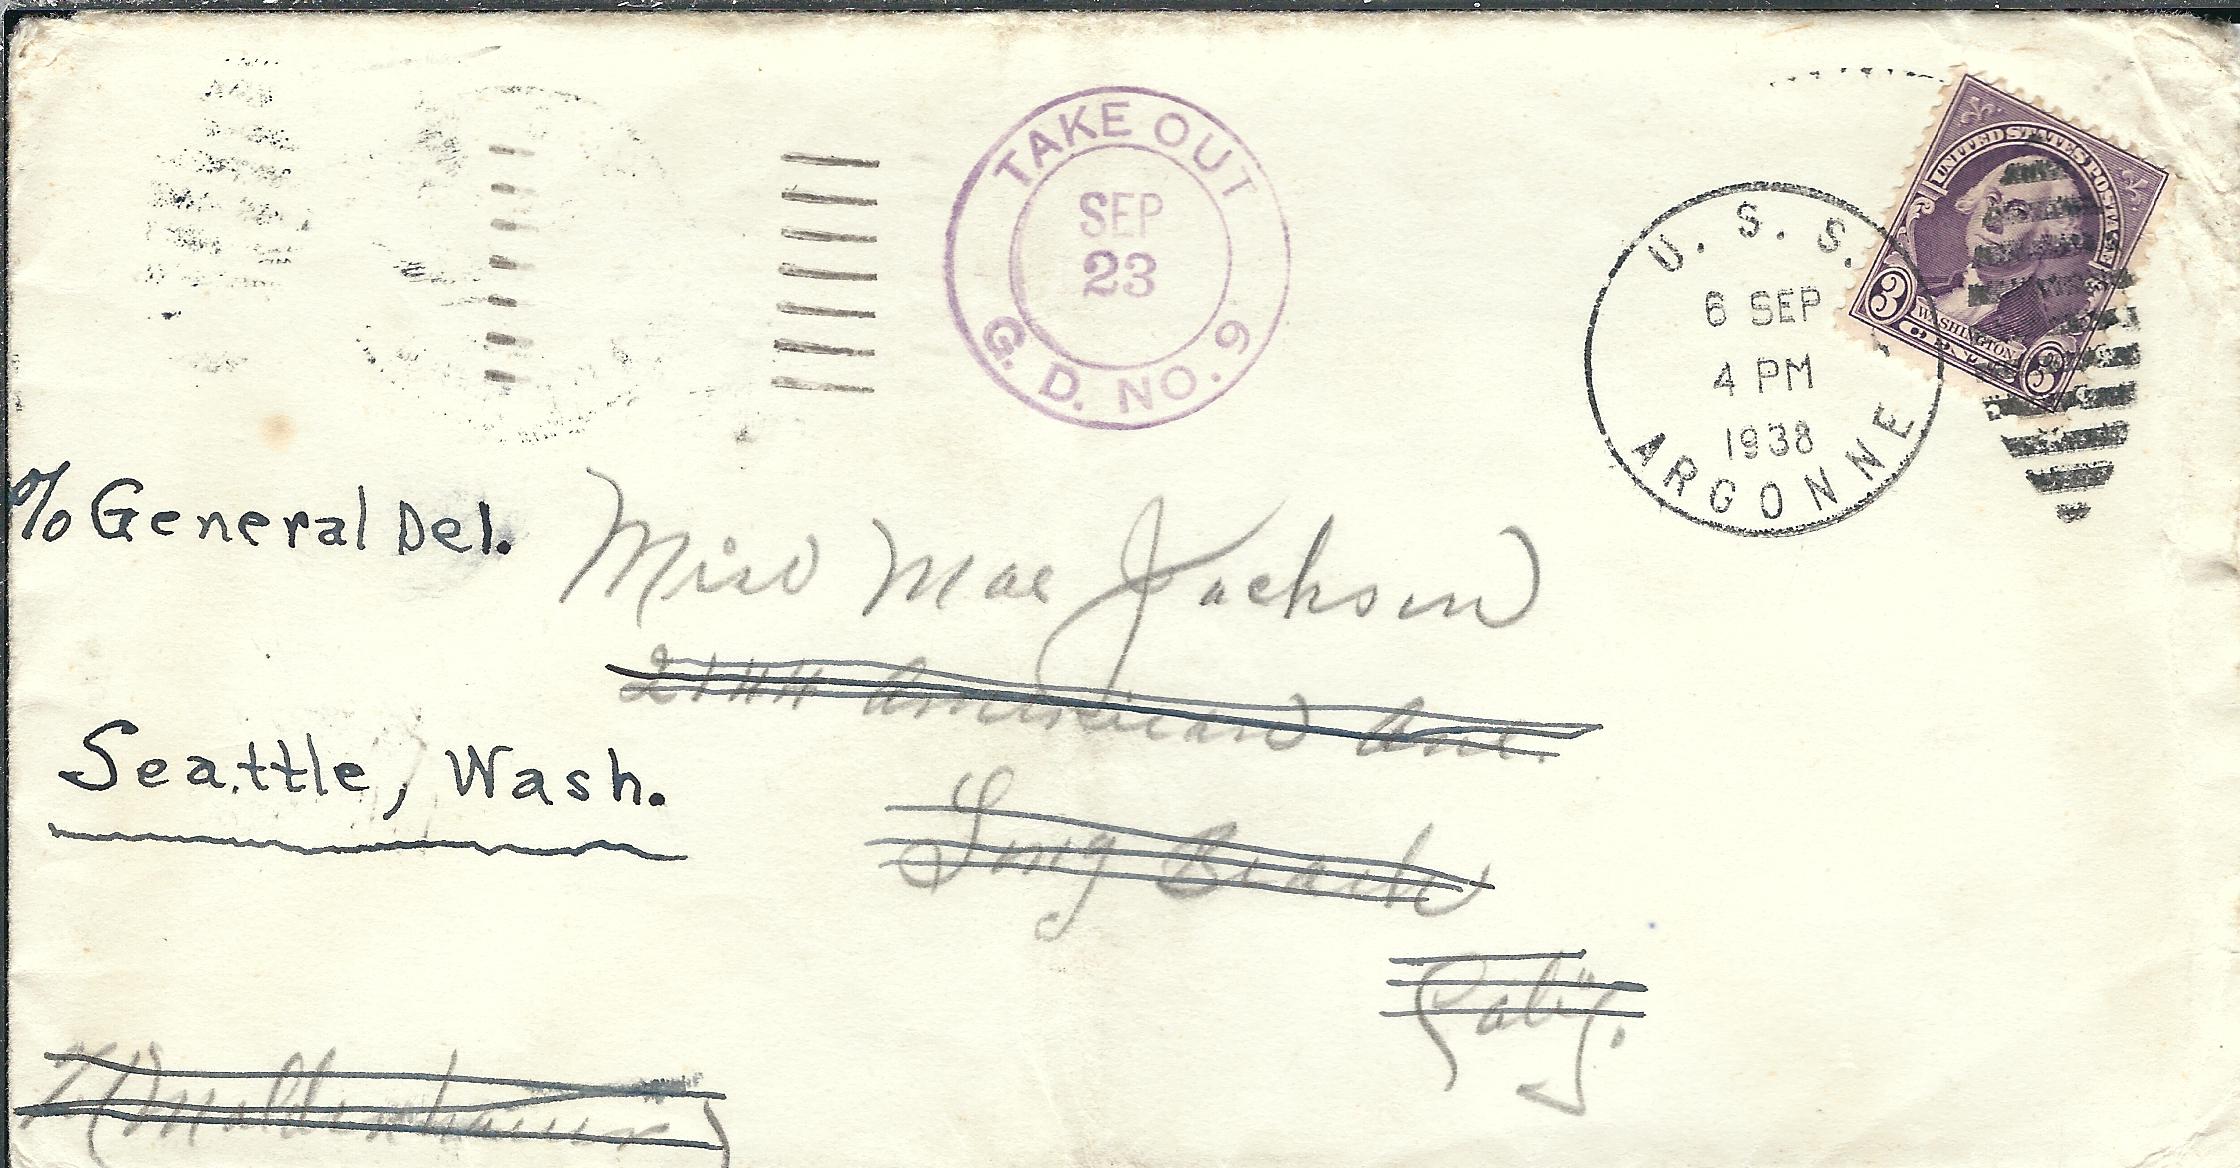 TAKE OUT
SEP
23
G. D. NO. 9
U. S. S.
6 SEP
4 PM
1938
ARGONNE
UNITED STATES POSTAGE
3 WASHINGTON 3
% General Del.
Miss Mae Jackson
2144 American Ave.
Seattle, Wash.
Long Beach
Calif.
% Moldenhauer